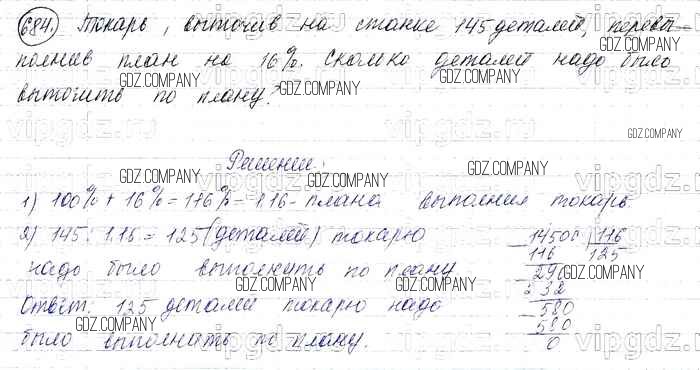 684. Токарь, выточив на станке 145 деталей, перевы-
полнив план на 16%. Сколько деталей надо было
GDZ.COMPANY GDZ.COMPANY
выточить по плану?
GDZ.COMPANY GDZ.COMPANY
vipgdz.ru vipgdz.ru
GDZ.COMPANY
Решение:
GDZ.COMPANY GDZ.COMPANY
1) 100% + 16% = 116% = 1.16 - плана выполнил токарь
2) 145 : 1.16 = 125 (деталей) токарю
GDZ.COMPANY GDZ.COMPANY
надо было выполнить по плану
Ответ. 125 деталей токарю надо
было выполнить по плану.
GDZ.COMPANY GDZ.COMPANY
14500 | 116
116 125
290
232
580
580
0